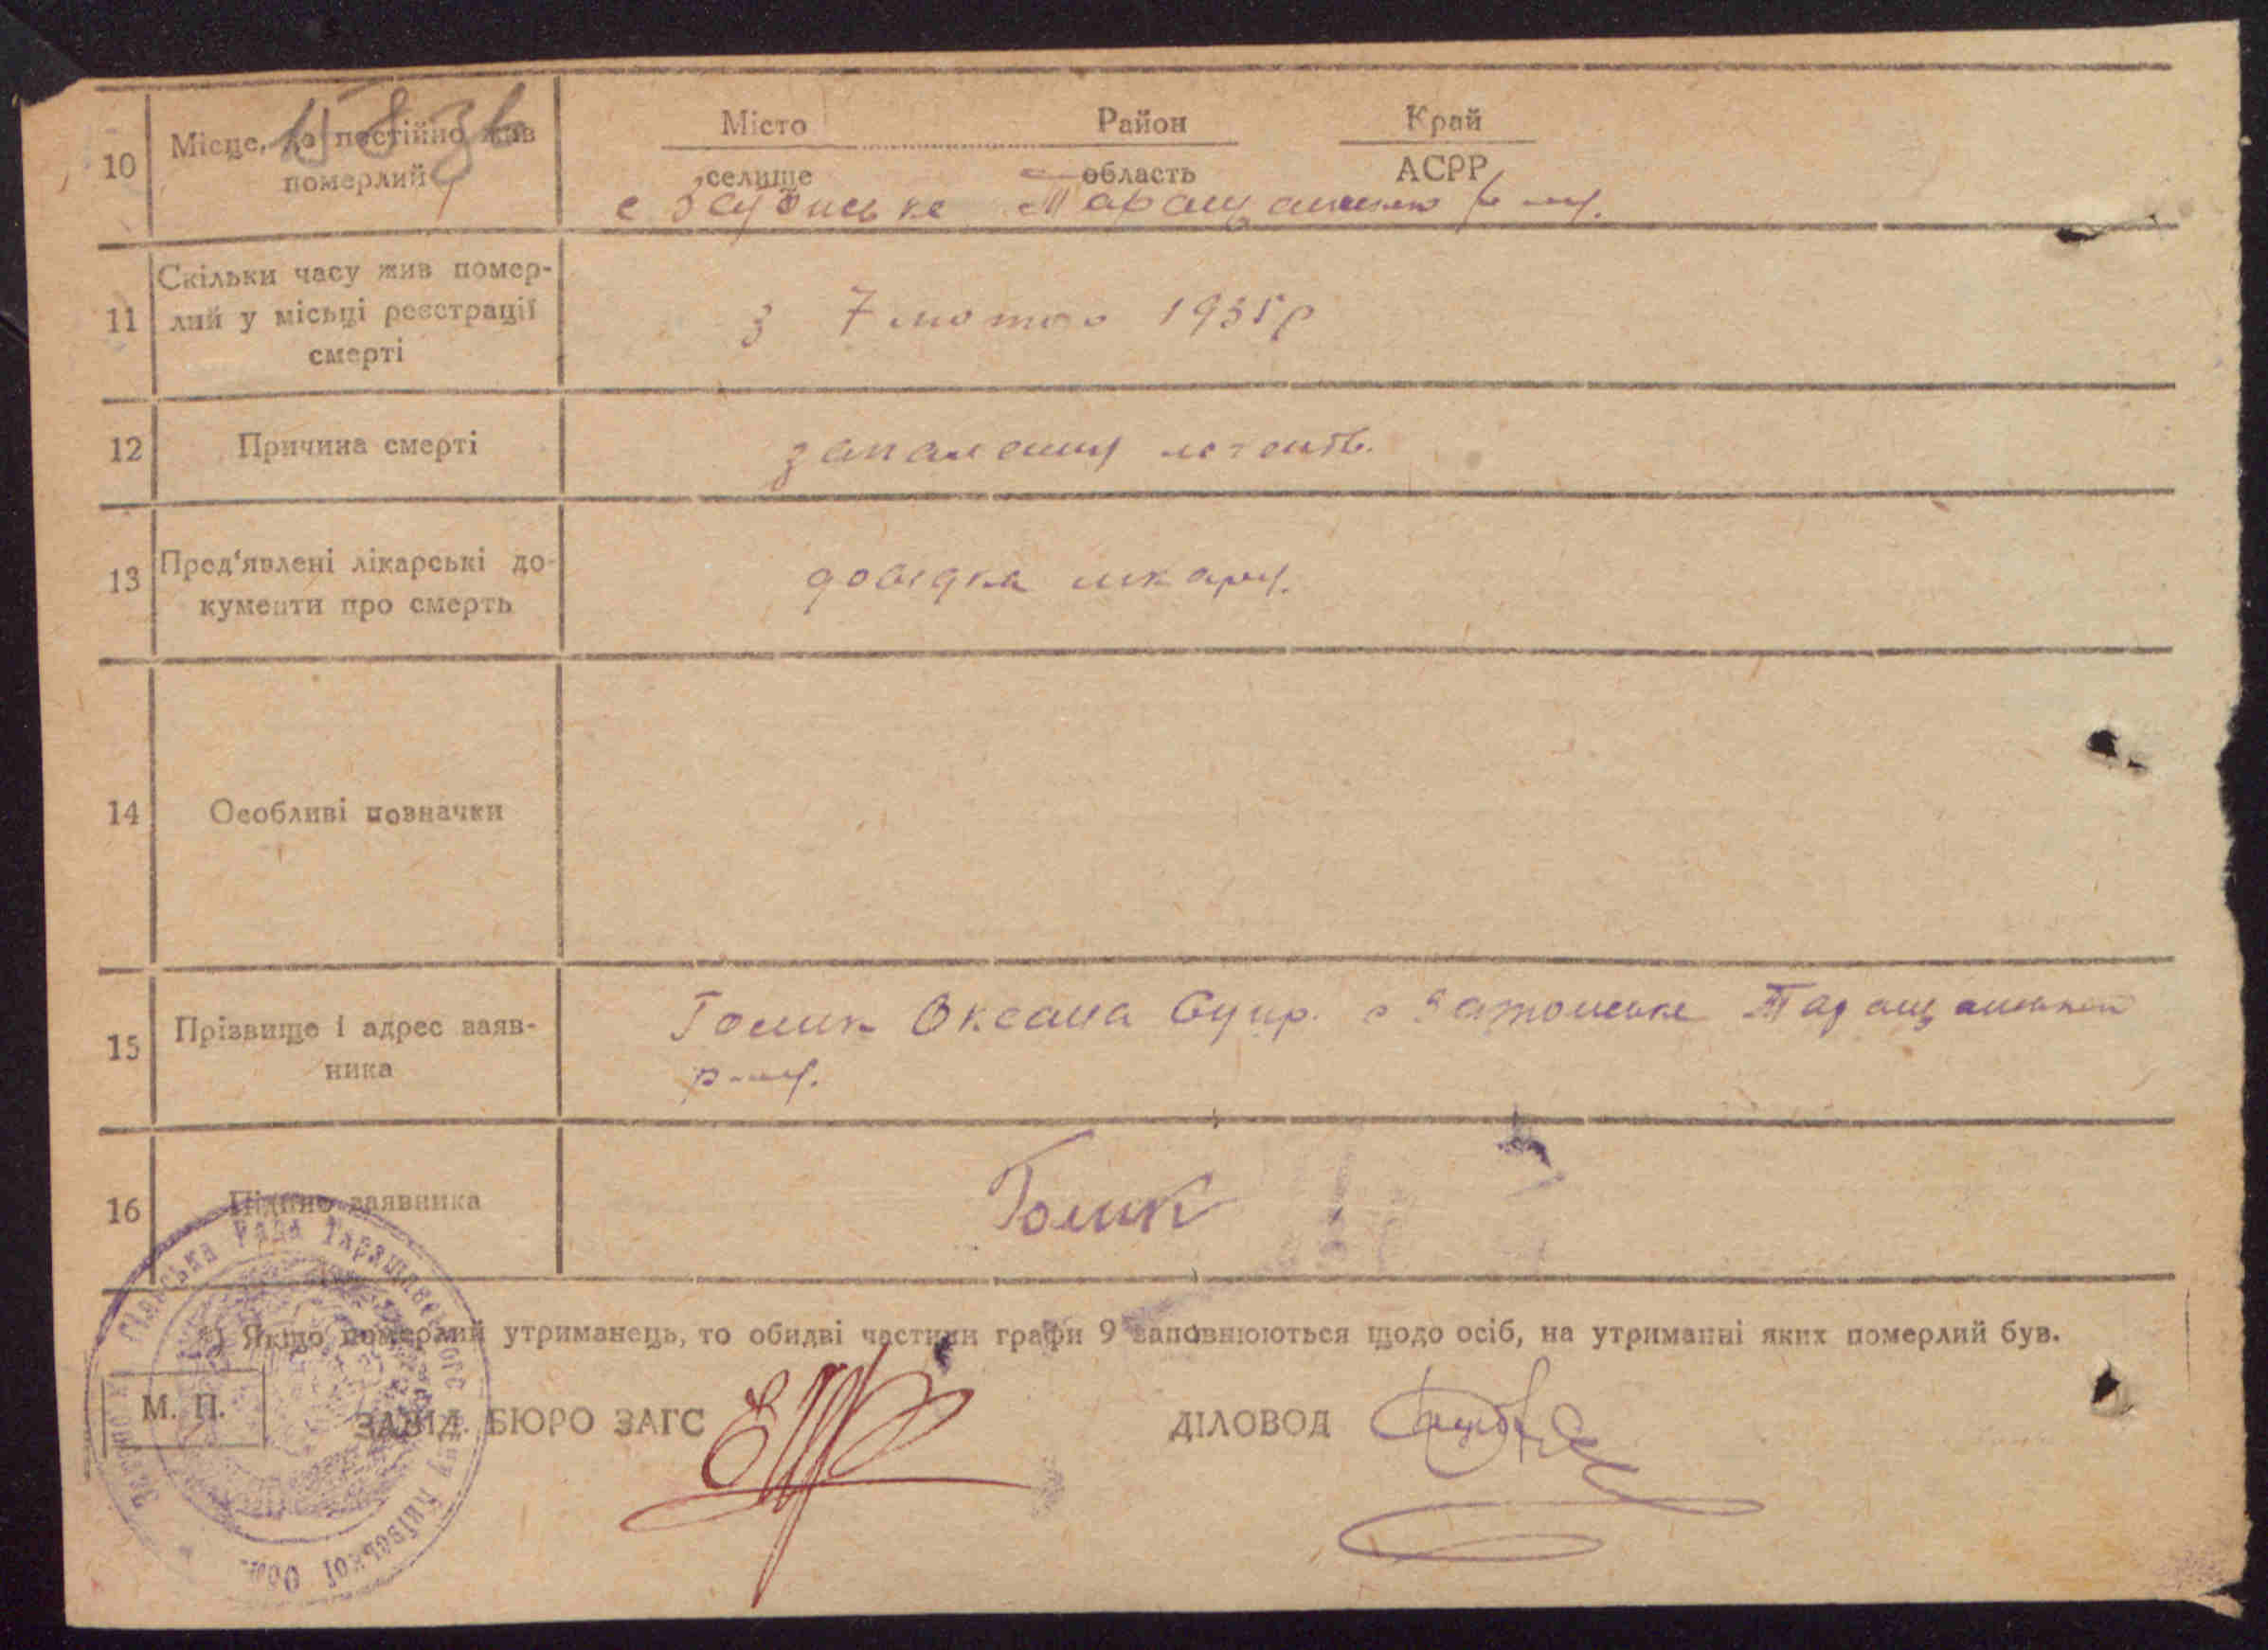 15 8 36
10 Місце, де постійно жив померлий
Місто Район Край
селище область АСРР
с Таращанського р-ну.
11 Скільки часу жив помер-
лий у місьці реєстрації
смерті
з 7 лютого 1935р
12 Причина смерті
запалення легенів.
13 Пред'явлені лікарські до-
кументи про смерть
довідка лікаря.
14 Особливі позначки
15 Прізвище і адрес заяв-
ника
Голик Оксана Супр. с Таращанського
р-ну.
16 Підпис заявника
Голик
*) Якщо померлий утриманець, то обидві частини графи 9 заповнюються щодо осіб, на утриманні яких померлий був.
М. П.
ЗАВІД. БЮРО ЗАГС
ДІЛОВОД
Сільська Рада Таращанського Району Київської Обл.